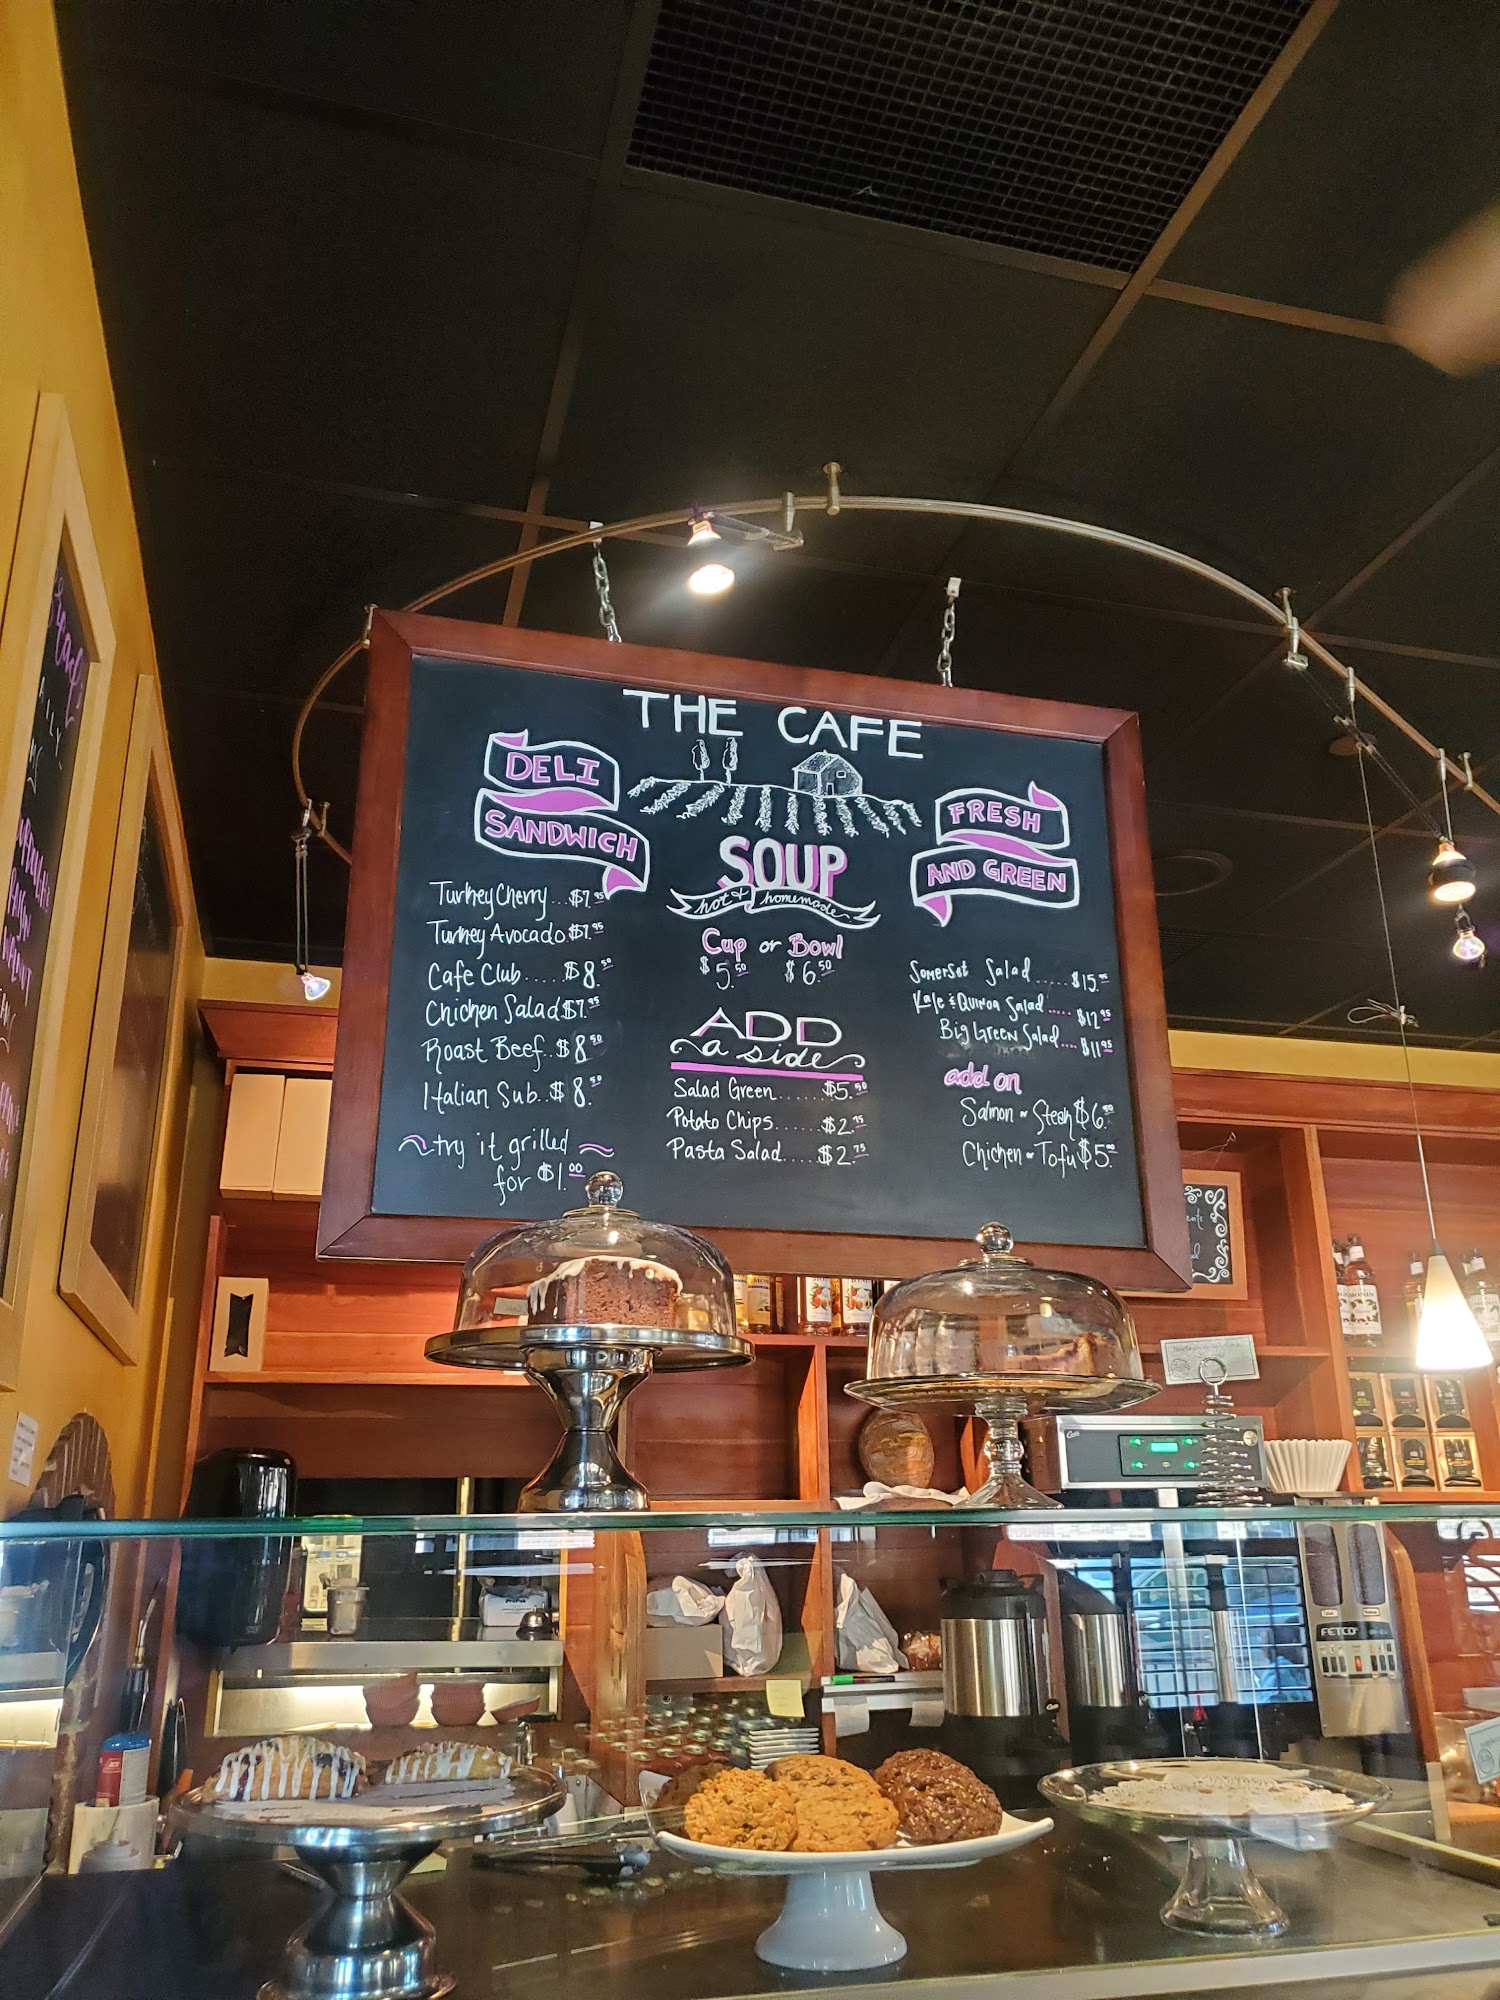 THE CAFE
DELI
SANDWICH
Turkey Cherry...$7.95
Turkey Avocado $7.95
Cafe Club.....$8.50
Chicken Salad $7.95
Roast Beef..$8.50
Italian Sub..$8.50
try it grilled
for $1.00
SOUP
hot & homemade
Cup or Bowl
$5.50 $6.50
ADD
a side
Salad Green.......$5.50
Potato Chips......$2.75
Pasta Salad.....$2.75
FRESH
AND GREEN
Somerset Salad.....$15.95
Kale & Quinoa Salad.....$12.95
Big Green Salad....$11.95
add on
Salmon or Steak $6.00
Chicken or Tofu $5.00
FETCO